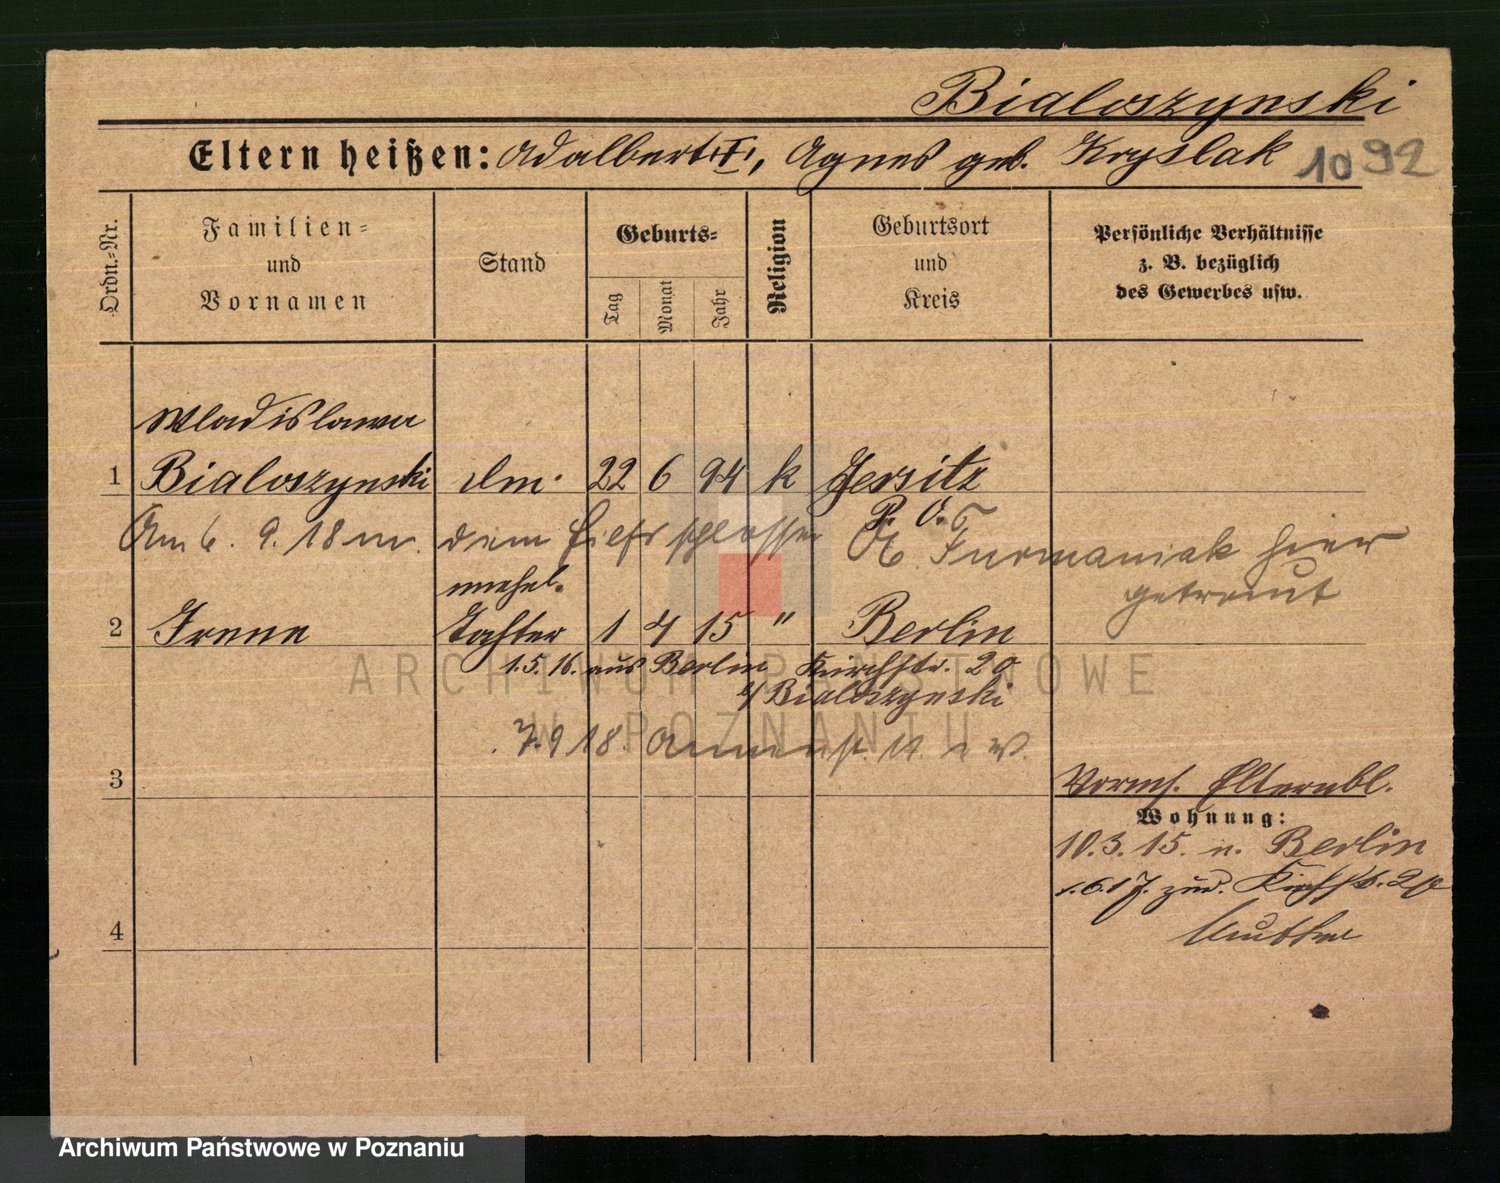 Bialoszynski
Eltern heißen: Adalbert I, Agnes geb. Kryslak 1092
Ordn.-Nr.
Familien-
und
Vornamen
Stand
Geburts-
Tag
Monat
Jahr
Religion
Geburtsort
und
Kreis
Persönliche Verhältnisse
z. B. bezüglich
des Gewerbes usw.
Wladislawa
1 Bialoszynski 22 6 94 k Jersitz
P. O.
Am 6. 9. 18 m. dem Furmaniak hier
getraut
unehel.
2 Irene Tochter 1 4 15 " Berlin
1.5.16. aus Berlin Kirchstr. 20
Bialoszynski
7. 9 18.
3
Elternbl.
Wohnung:
10.3.15. n. Berlin
1.6.17. zur. Kirchstr.
4
Mutter
ARCHIWUM PAŃSTWOWE
W POZNANIU
Archiwum Państwowe w Poznaniu